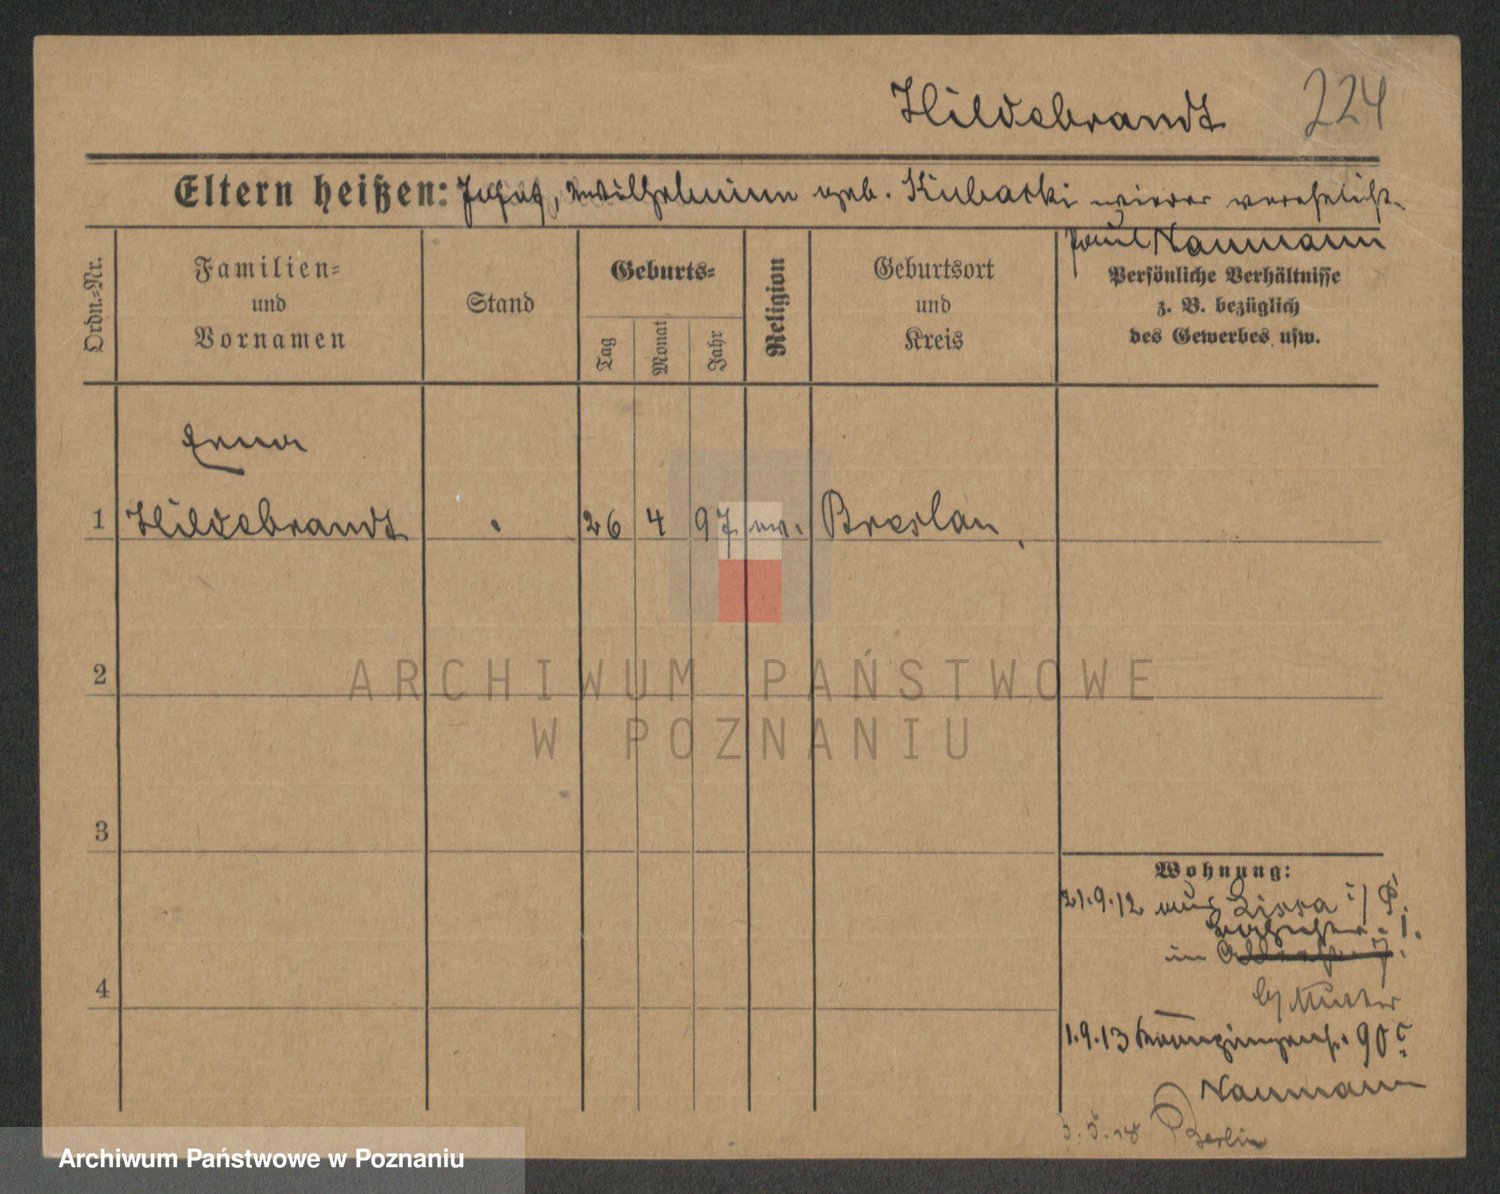 Hildebrandt 224
Eltern heißen: Josef, Wilhelmine geb. Kubaski wieder verehelicht
Paul Naumann
Ordn.-Nr.
Familien-
und
Vornamen
Stand
Geburts-
Tag
Monat
Jahr
Religion
Geburtsort
und
Kreis
Persönliche Verhältnisse
z. B. bezüglich
des Gewerbes usw.
Erna
1 Hildebrandt 26 4 97 ev. Breslau
2
3
4
Wohnung:
21.9.12 aus Lissa i/P.
in
b/ Mutter
1.9.13 Kronprinzenst. 90
Naumann
Berlin
ARCHIWUM PAŃSTWOWE
W POZNANIU
Archiwum Państwowe w Poznaniu